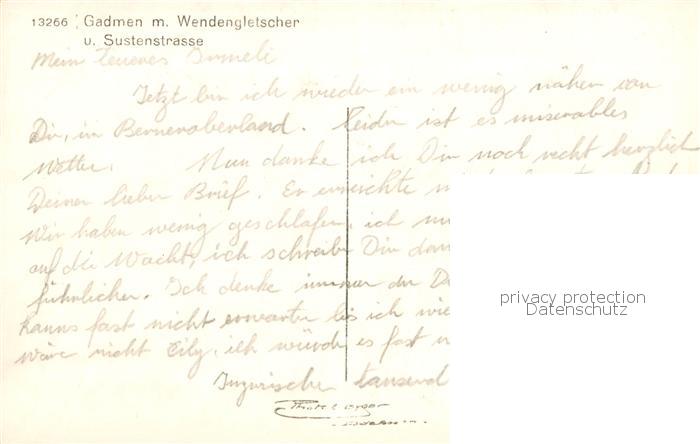 13266 Gadmen m. Wendengletscher
u. Sustenstrasse
Mein teueres Irmeli
Jetzt bin ich wieder ein wenig näher von
Dir, im Berneroberland. Leider ist es miserables
Wetter. Nun danke ich Dir noch recht herzlich
Deinen lieben Brief. Er erreichte
Wir haben wenig geschlafen, ich
auf die Wacht, ich schreibe Dir dann
führlicher. Ich denke immer an
kanns fast nicht erwarten bis ich wie
wäre nicht Eily, ich würde es fast
Inzwischen tausend
privacy protection
Datenschutz